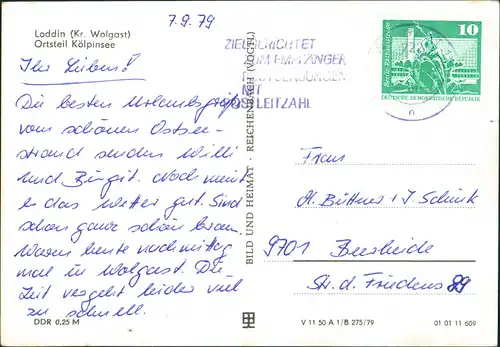 Loddin (Kr. Wolgast)
Ortsteil Kölpinsee
7.9.79
Ihr Lieben!
Die besten Urlaubsgrüße
vom schönen Ostsee-
strand senden Willi
und Birgit. Noch meint
es das Wetter gut. Sind
schon ganz schön braun.
Waren heute nachmittag
mal in Wolgast. Die
Zeit vergeht leider viel
zu schnell.
DDR 0,25 M
BILD UND HEIMAT · REICHENBACH (VOGTL)
ZIELGERICHTET
ZUM EMPFÄNGER
MIT
POSTLEITZAHL
10
Berlin-Rathausstraße
DEUTSCHE DEMOKRATISCHE REPUBLIK
n
Frau
H. Büttner + I. Schink
9701 Beerheide
Str. d. Friedens 89
V 11 50 A 1/B 275/79
01 01 11 609